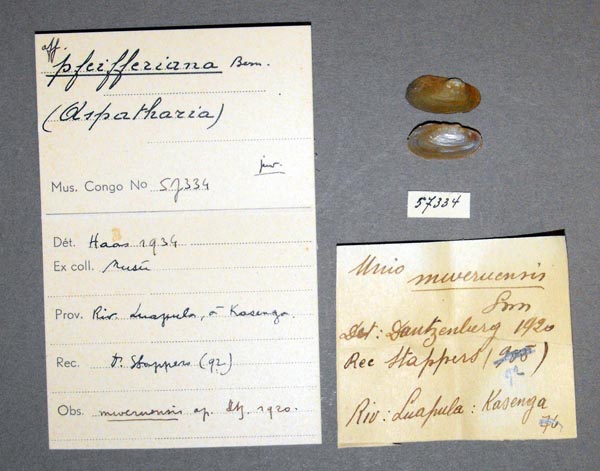 aff. pfeifferiana Bern.
(Aspatharia)
juv.
Mus. Congo No 57334
Dét. Haas 1934
Ex coll. Musée
Prov. Riv. Luapula, à Kasenga.
Rec. Dr Stappers (92)
Obs. mweruensis ap. Dtz. 1920.
57334
Unio mweruensis
Sm
Det: Dautzenberg 1920
Rec Stappers (
92
Riv: Luapula: Kasenga